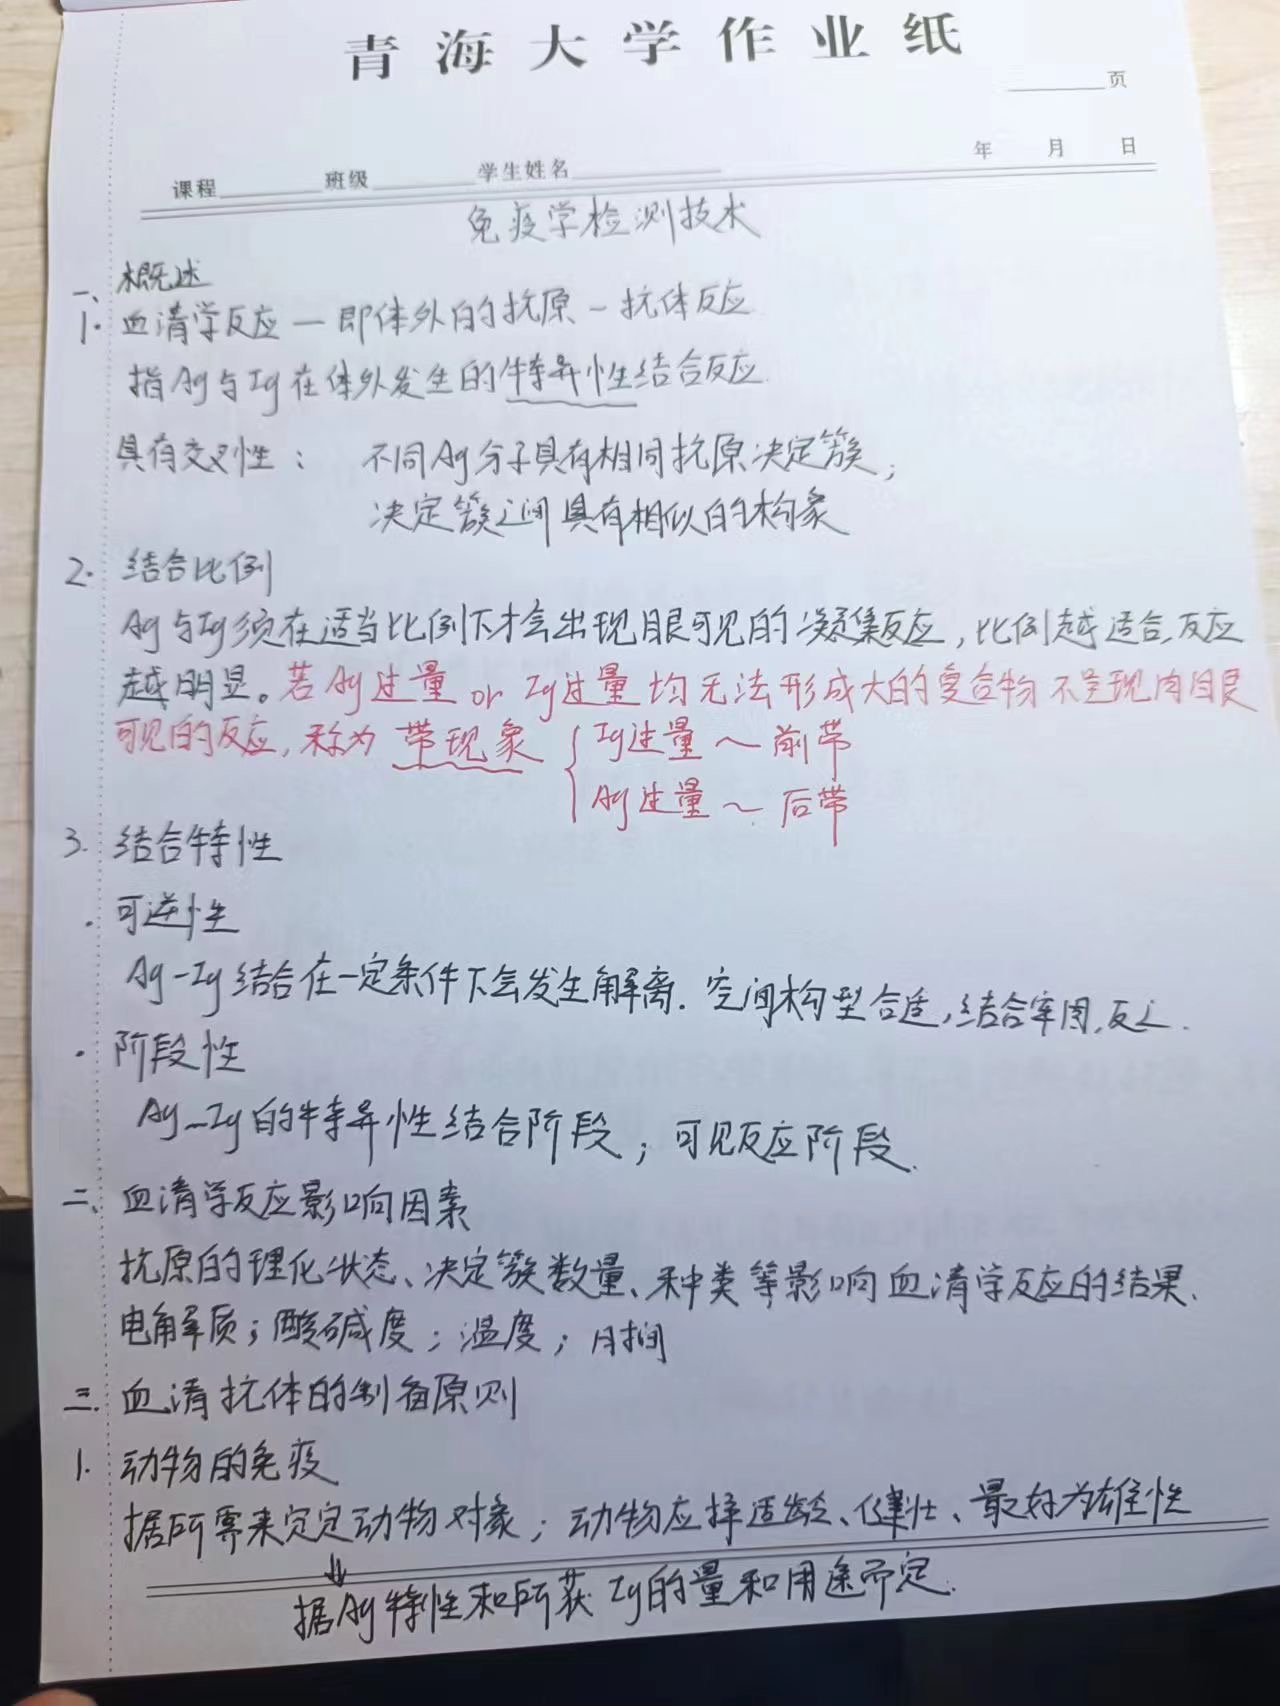 青海大学作业纸
页
年 月 日
课程 班级 学生姓名
免疫学检测技术
一、概述
1. 血清学反应—即体外的抗原-抗体反应
指Ag与Ig在体外发生的特异性结合反应.
具有交叉性： 不同Ag分子具有相同抗原决定簇；
决定簇之间具有相似的构象
2. 结合比例
Ag与Ig须在适当比例下才会出现眼可见的凝集反应，比例越适合,反应
越明显。若Ag过量 or Ig过量均无法形成大的复合物不呈现肉眼
可见的反应，称为 带现象 { Ig过量～前带
Ag过量～后带
3. 结合特性
. 可逆性
Ag-Ig结合在一定条件下会发生解离. 空间构型合适,结合牢固,反之.
. 阶段性
Ag-Ig的特异性结合阶段；可见反应阶段.
二、血清学反应影响因素
抗原的理化状态、决定簇数量、种类等影响血清学反应的结果.
电解质；酸碱度；温度；时间
三. 血清抗体的制备原则
1. 动物的免疫
据所需来定动物对象；动物应择适龄、健壮、最好为雄性
↓
据Ag特性和所获Ig的量和用途而定.